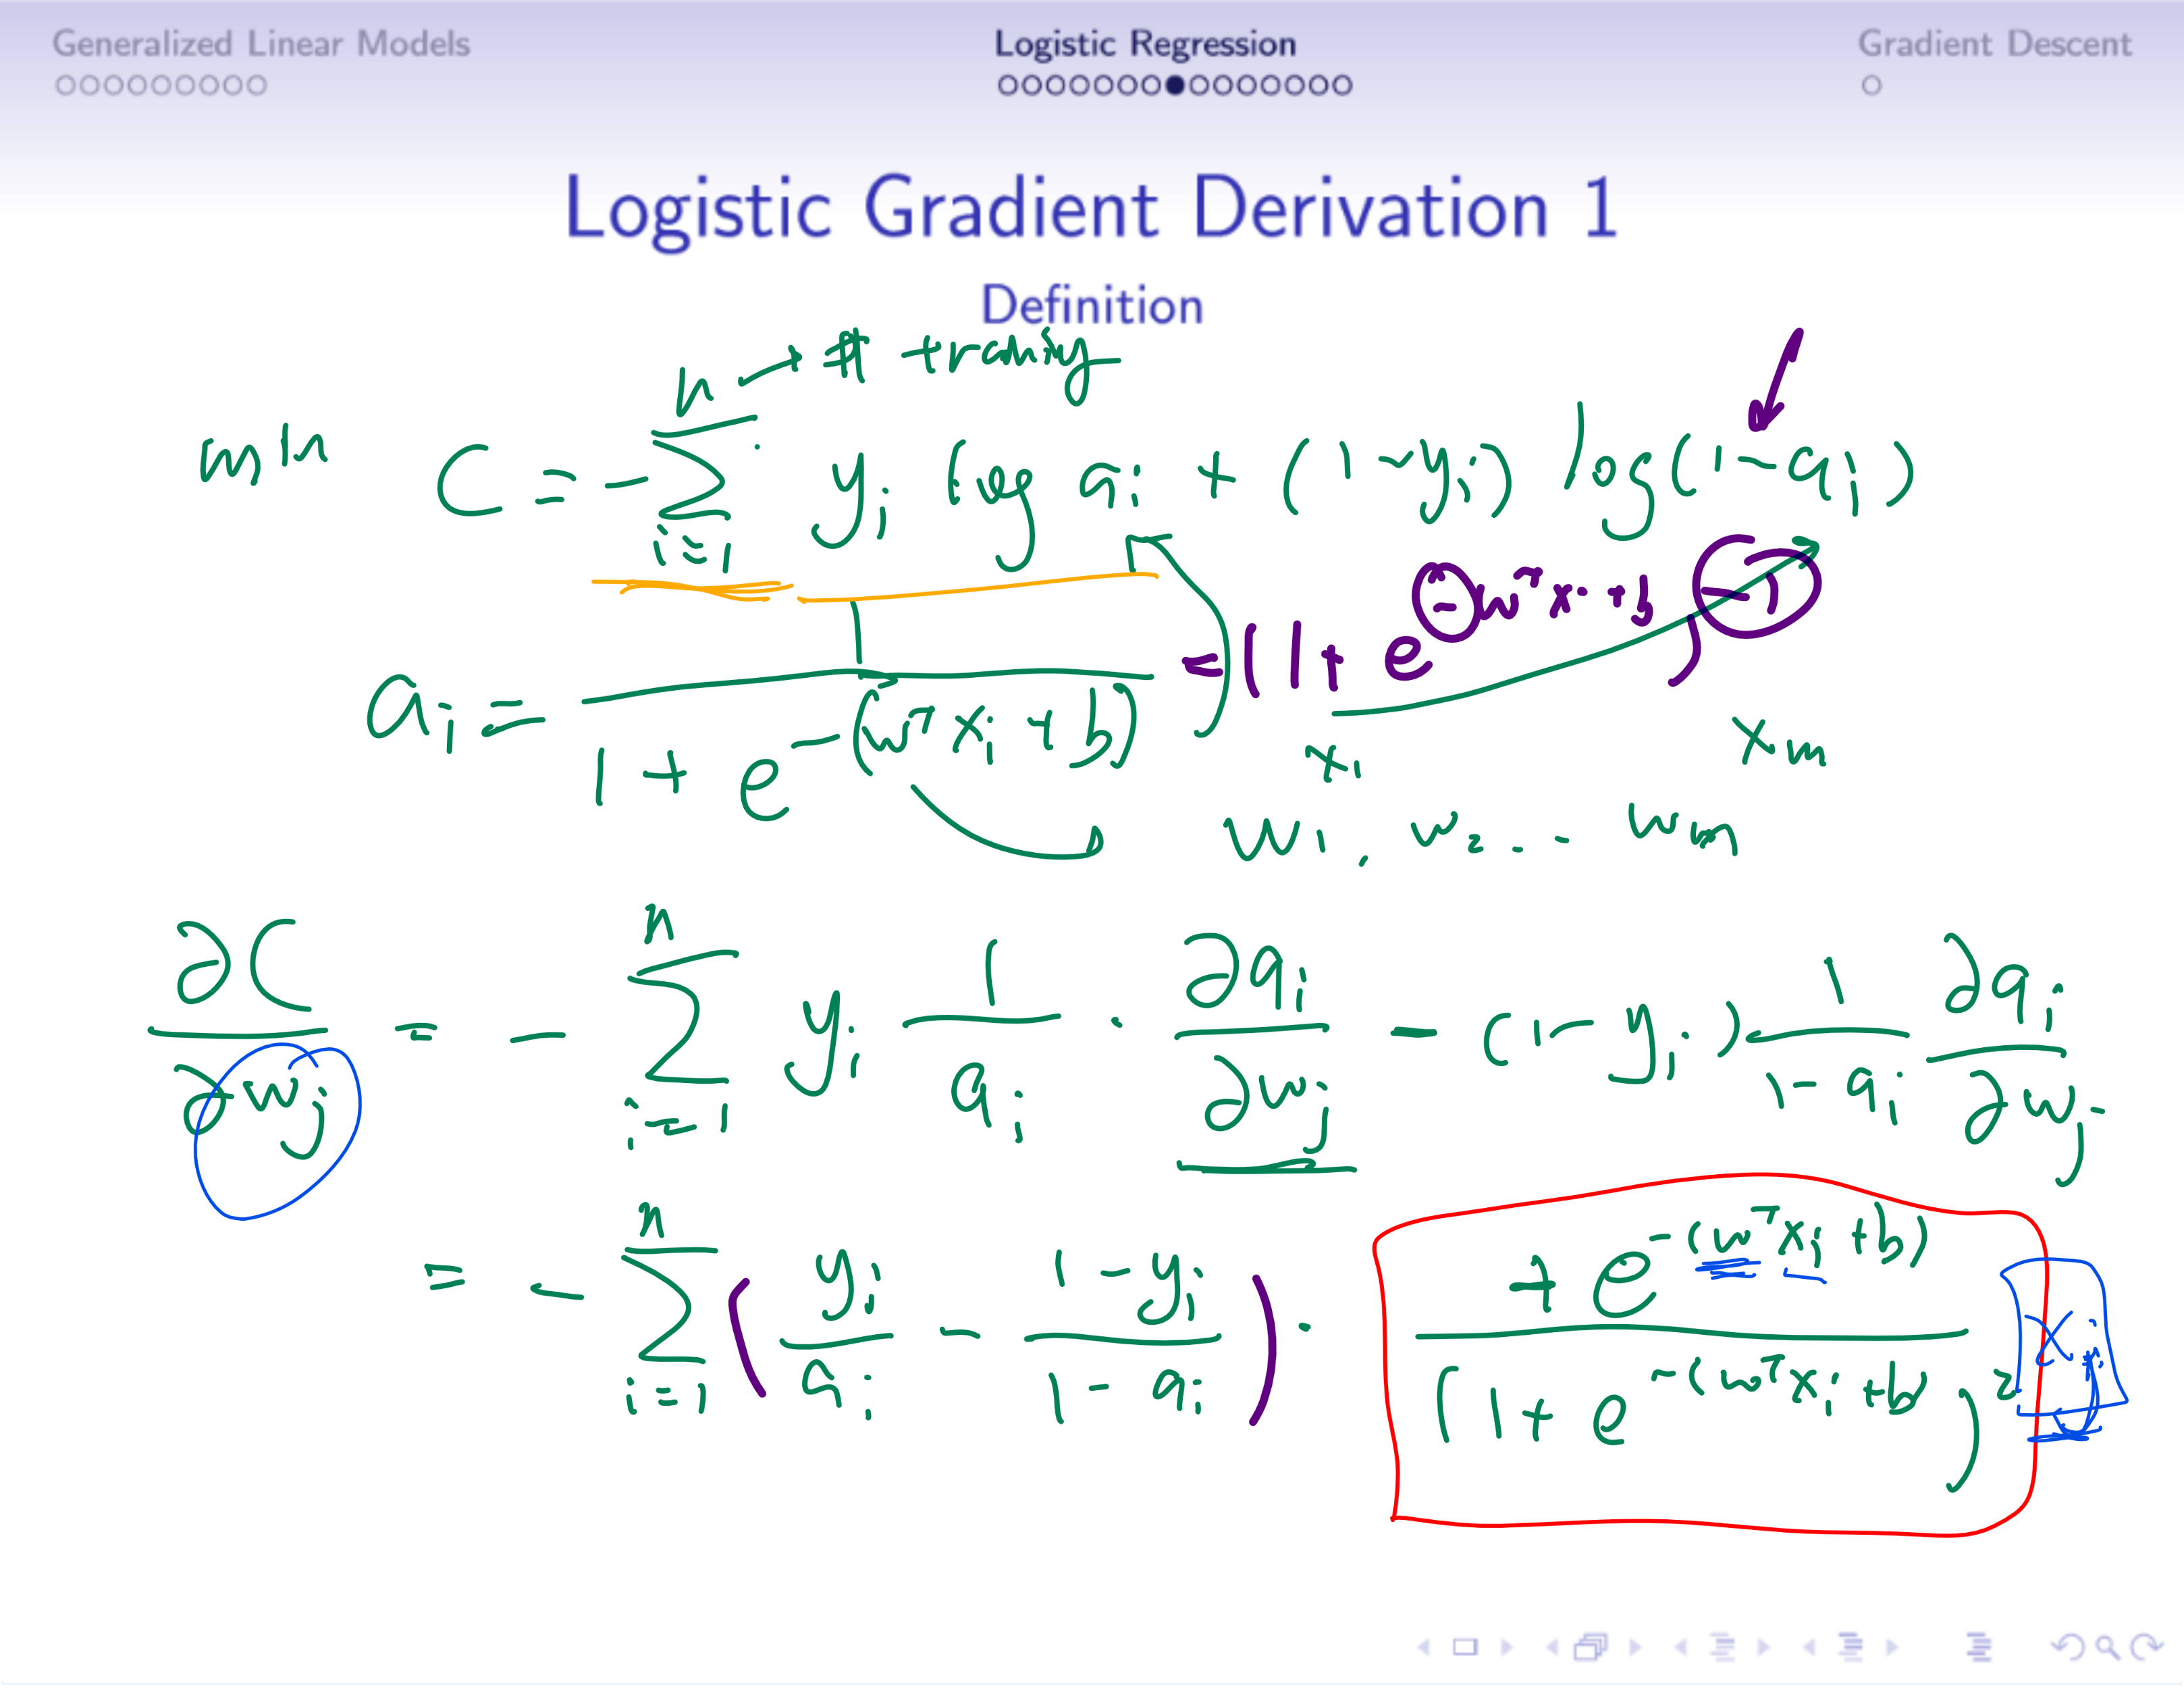 Generalized Linear Models
Logistic Regression
Gradient Descent
Logistic Gradient Derivation 1
Definition
n → # training
min C = - ∑ i=1 y_i log a_i + (1 - y_i) log(1 - a_i)
a_i = 1 / (1 + e^-(w^T x_i + b)) = (1 + e^-(w^T x_i + b))^(-1)
x_1 x_m
w_1, w_2 ... w_m
∂C/∂w_j = - ∑ i=1 n y_i 1/a_i · ∂a_i/∂w_j - (1 - y_i) 1/(1 - a_i) ∂a_i/∂w_j
= - ∑ i=1 n (y_i/a_i - (1 - y_i)/(1 - a_i)) · + e^-(w^T x_i + b) / (1 + e^-(w^T x_i + b))^2 x_ij